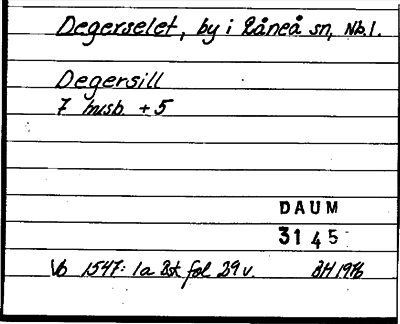 Degerselet, by i Råneå sn, Nb.l.
Degersill
7 husb. + 5
DAUM
3145
Vb 1547: 1a Bst fol 29 v. BH 1976